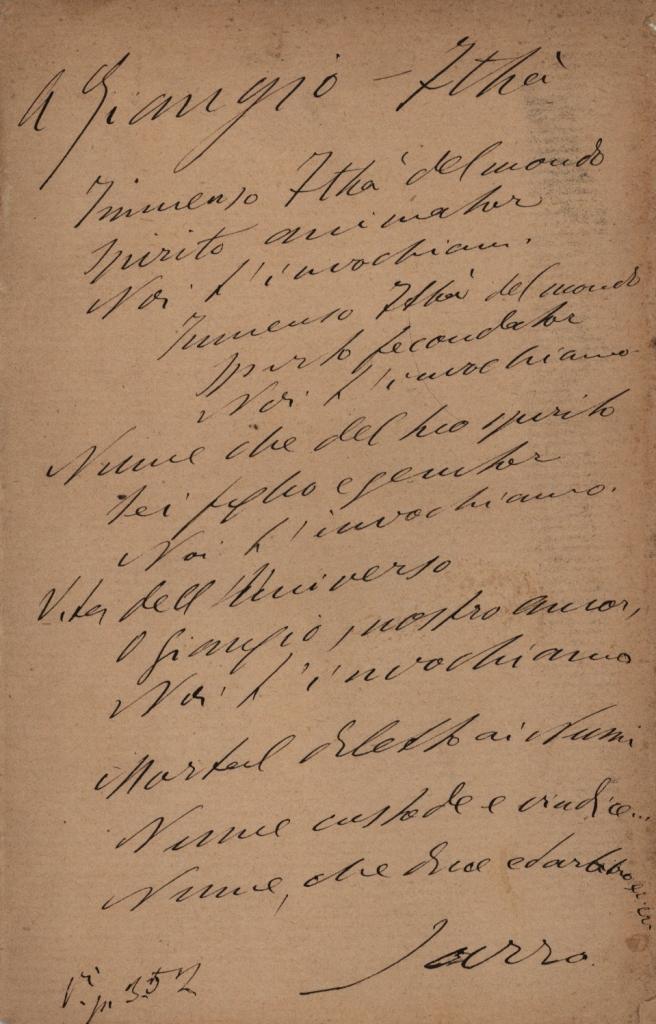 A Giangio - Ithà
Immenso Ithà del mondo
Spirito animator
Noi t'invochiam.
Immenso Ithà del mondo
Spirto fecondator
Noi t'invochiamo
Nume che del tuo spirito
Sei figlio e genitor
Noi t'invochiamo.
Vita dell'Universo
O Giangio, nostro amor,
Noi t'invochiamo
Mortal diletto ai Numi
Nume custode e vindice...
Nume, che duce ed arbitro
Jarro.
V. p. 352